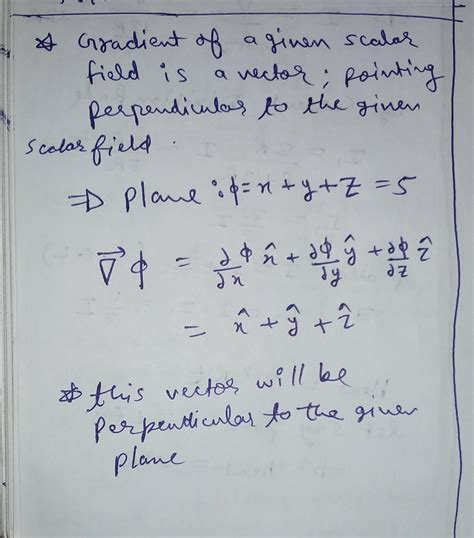 * Gradient of a given scalar
field is a vector; pointing
perpendicular to the given
scalar field.
⇒ plane : ϕ = x + y + z = 5
∇⃗ϕ = ∂ϕ/∂x x̂ + ∂ϕ/∂y ŷ + ∂ϕ/∂z ẑ
= x̂ + ŷ + ẑ
* this vector will be
perpendicular to the given
plane